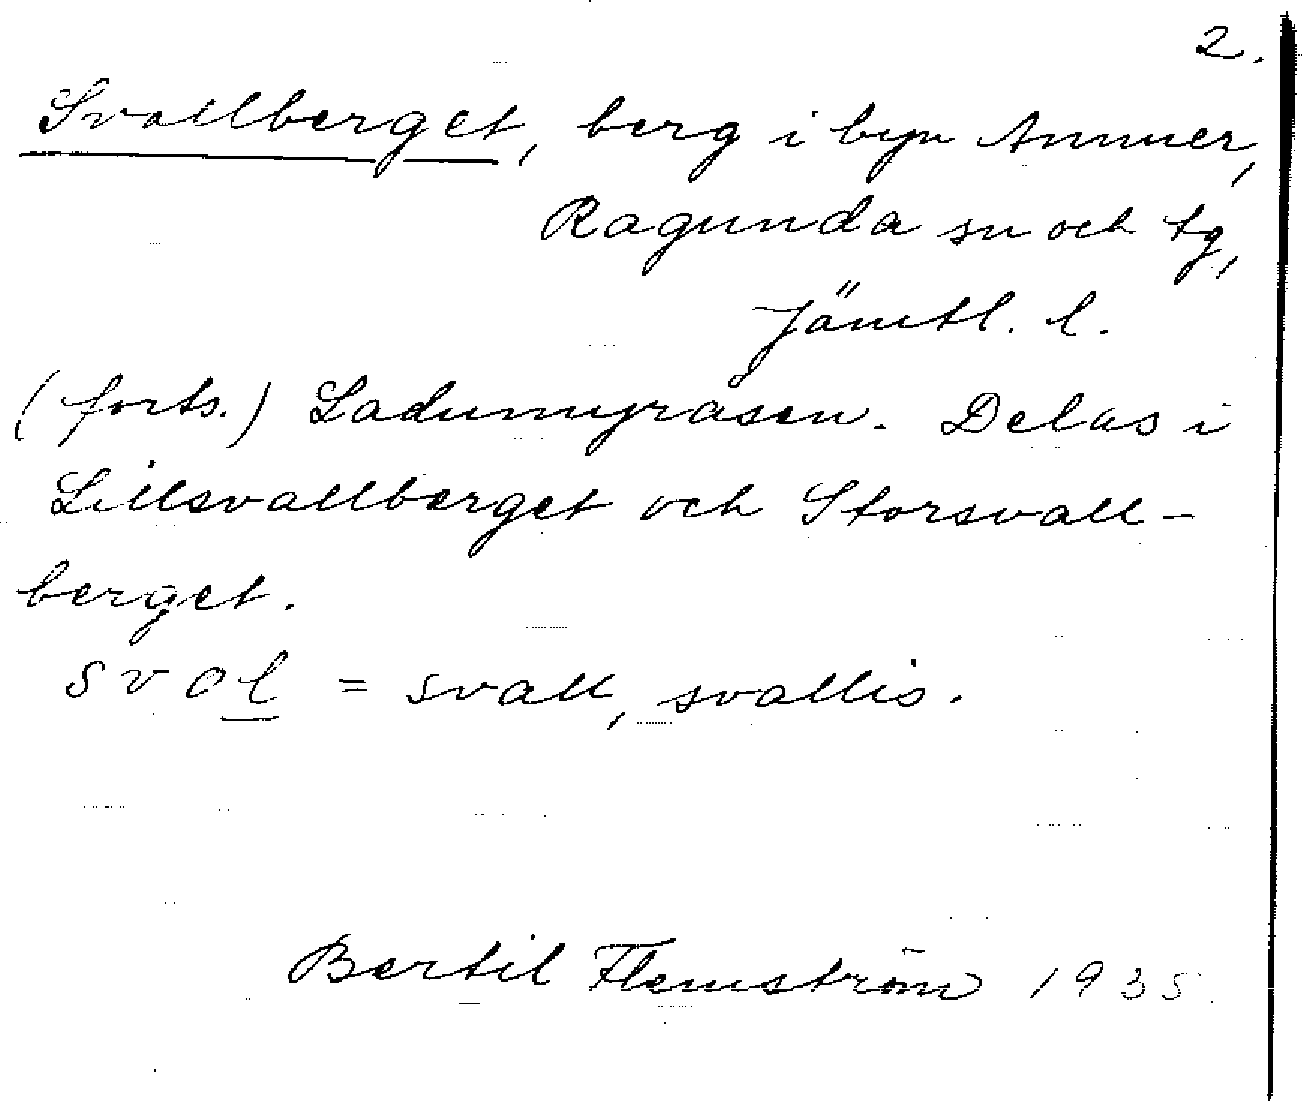 2.
Svallberget, berg i byn Ammer,
Ragunda sn och tg,
Jämtl. l.
(forts.) Ladumyråsen. Delas i
Lillsvallberget och Storsvall-
berget.
svol = svall, svallis.
Bertil Flemström 1935.